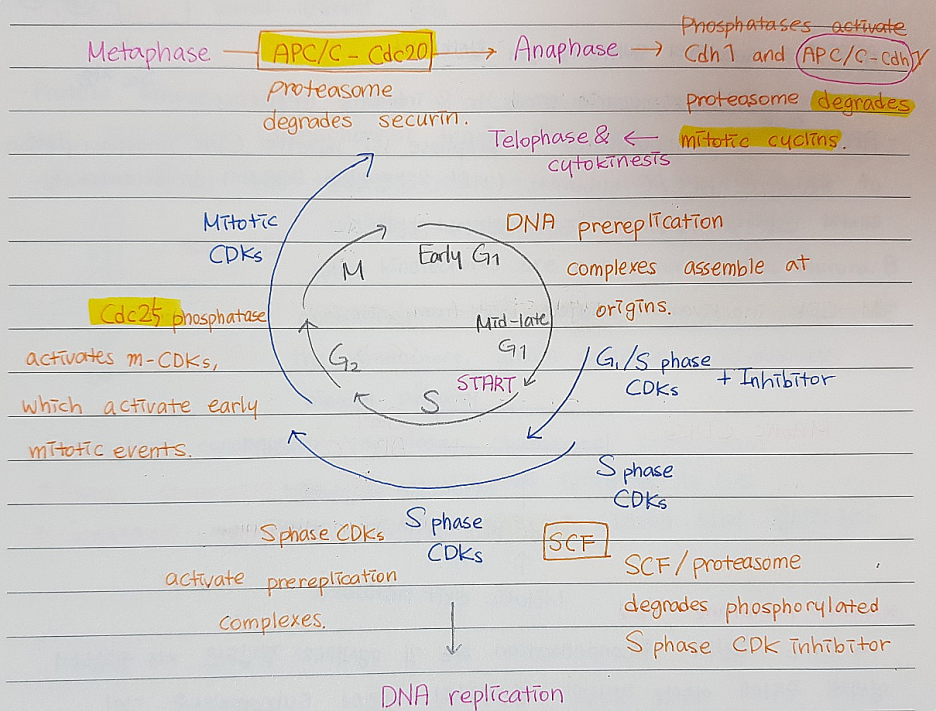 Metaphase → APC/C - Cdc20 → Anaphase →
Phosphatases activate
Cdh1 and APC/C-Cdh1
proteasome
degrades securin.
proteasome degrades
mitotic cyclins.
Telophase & ←
cytokinesis
Mitotic
CDKs
M
Early G1
DNA prereplication
complexes assemble at
origins.
Cdc25 phosphatase
activates m-CDKs,
which activate early
mitotic events.
G2
Mid-late
G1
START
S
G1/S phase
CDKs + Inhibitor
S phase
CDKs
S phase
CDKs
S phase CDKs
activate prereplication
complexes.
SCF
SCF/proteasome
degrades phosphorylated
S phase CDK inhibitor
DNA replication